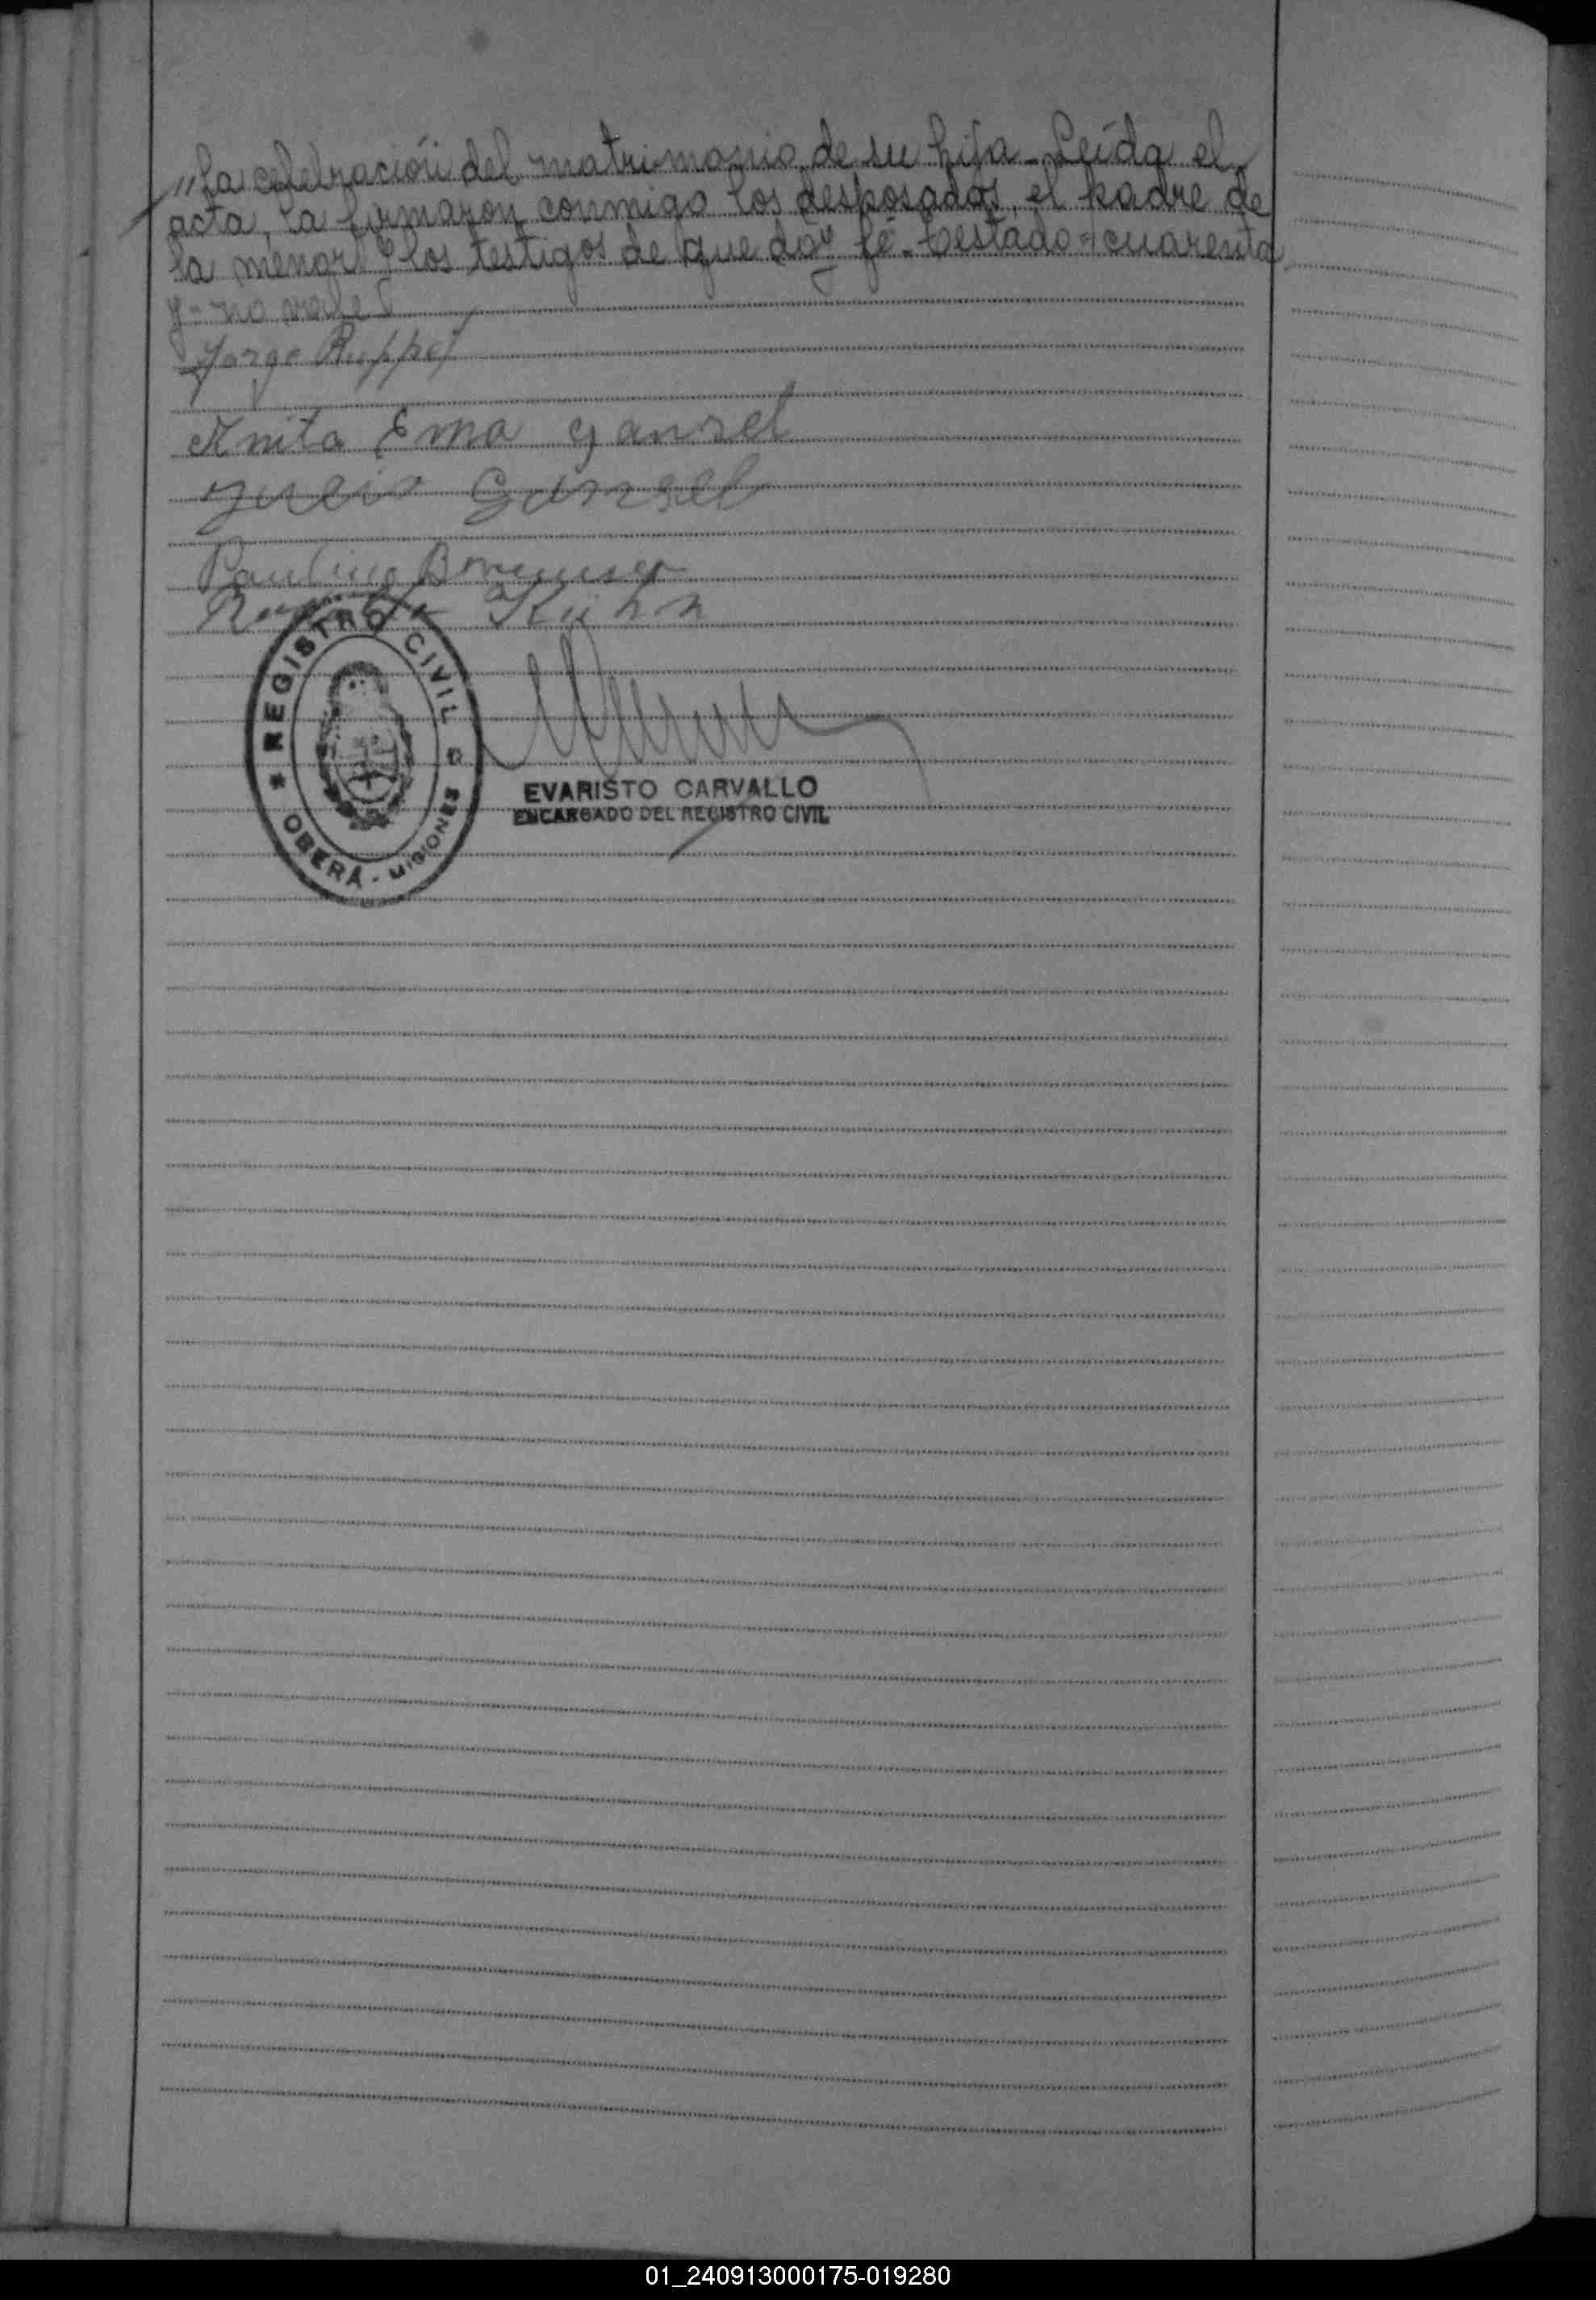 "la celebración del matrimonio de su hija - Leída el
acta, la firmaron conmigo los desposados, el padre de
la menor y los testigos de que doy fé - Testado = cuarenta
y = no vale
Jorge Ruppel
Anita Ema Gansel
Julio Gansel
Kühn
REGISTRO CIVIL
OBERÁ - MISIONES
EVARISTO CARVALLO
ENCARGADO DEL REGISTRO CIVIL
01_240913000175-019280